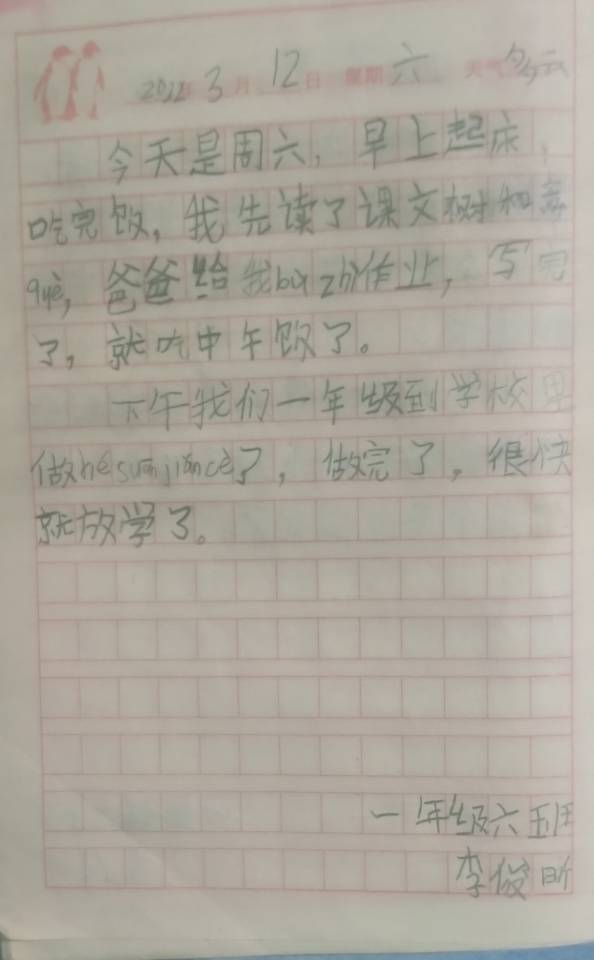 2022年3月12日 星期六 天气多云
今天是周六，早上起床，
吃完饭，我先读了课文树和喜
què，爸爸给我bù zhì作业，写完
了，就吃中午饭了。
下午我们一年级到学校里
做hésuānjiǎncè了，做完了，很快
就放学了。
一年级六班
李俊昕